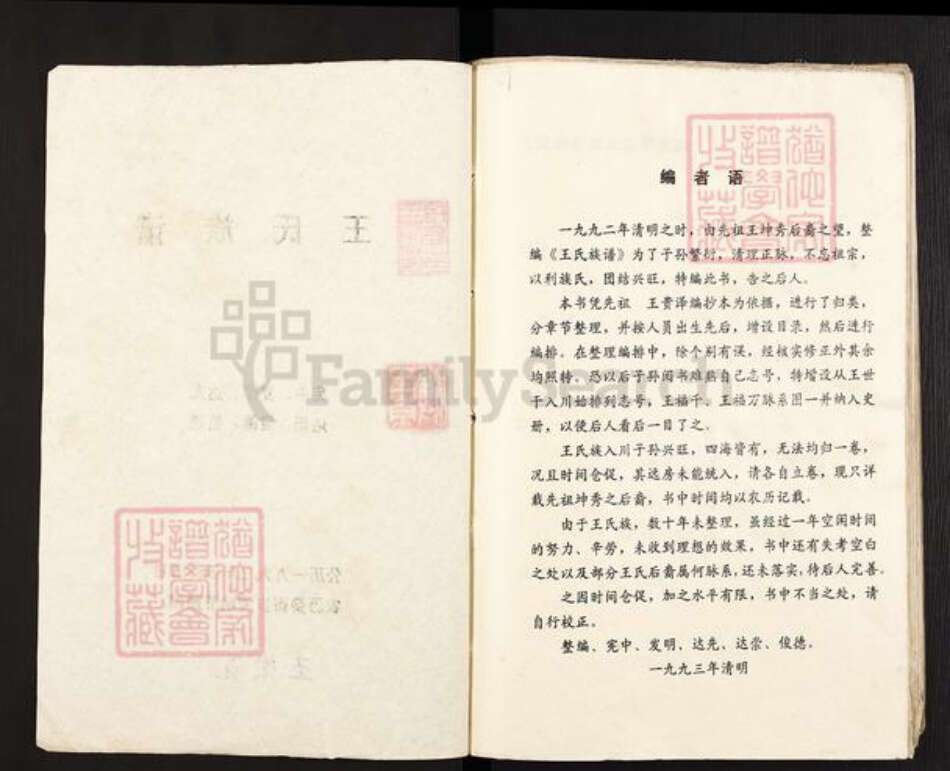 王氏族谱
公历一九九
编者语
一九九二年清明之时，由先祖王坤秀后裔之望，整
编《王氏族谱》为了子孙繁衍，清理正脉，不忘祖宗，
以利族氏，团结兴旺，特编此书，告之后人。
本书凭先祖 王贵泽编抄本为依据，进行了归类，
分章节整理，并按人员出生先后，增设目录，然后进行
编排。在整理编排中，除个别有误，经核实修正外其余
均照转。恐以后子孙阅书难熟自己志号，特增设从王世
千入川始排列志号，王福千、王福万脉系图一并纳入史
册，以使后人看后一目了之。
王氏族入川子孙兴旺，四海皆有，无法均归一卷，
况且时间仓促，其远房未能统入，请各自立卷，现只详
载先祖坤秀之后裔，书中时间均以农历记载。
由于王氏族，数十年未整理，虽经过一年空闲时间
的努力、辛劳，未收到理想的效果，书中还有失考空白
之处以及部分王氏后裔属何脉系，还未落实，待后人完善。
之因时间仓促，加之水平有限，书中不当之处，请
自行校正。
整编、宪中、发明、达先、达崇、俊德。
一九九三年清明
FamilySearch
譜學會
收藏
譜學會
收藏